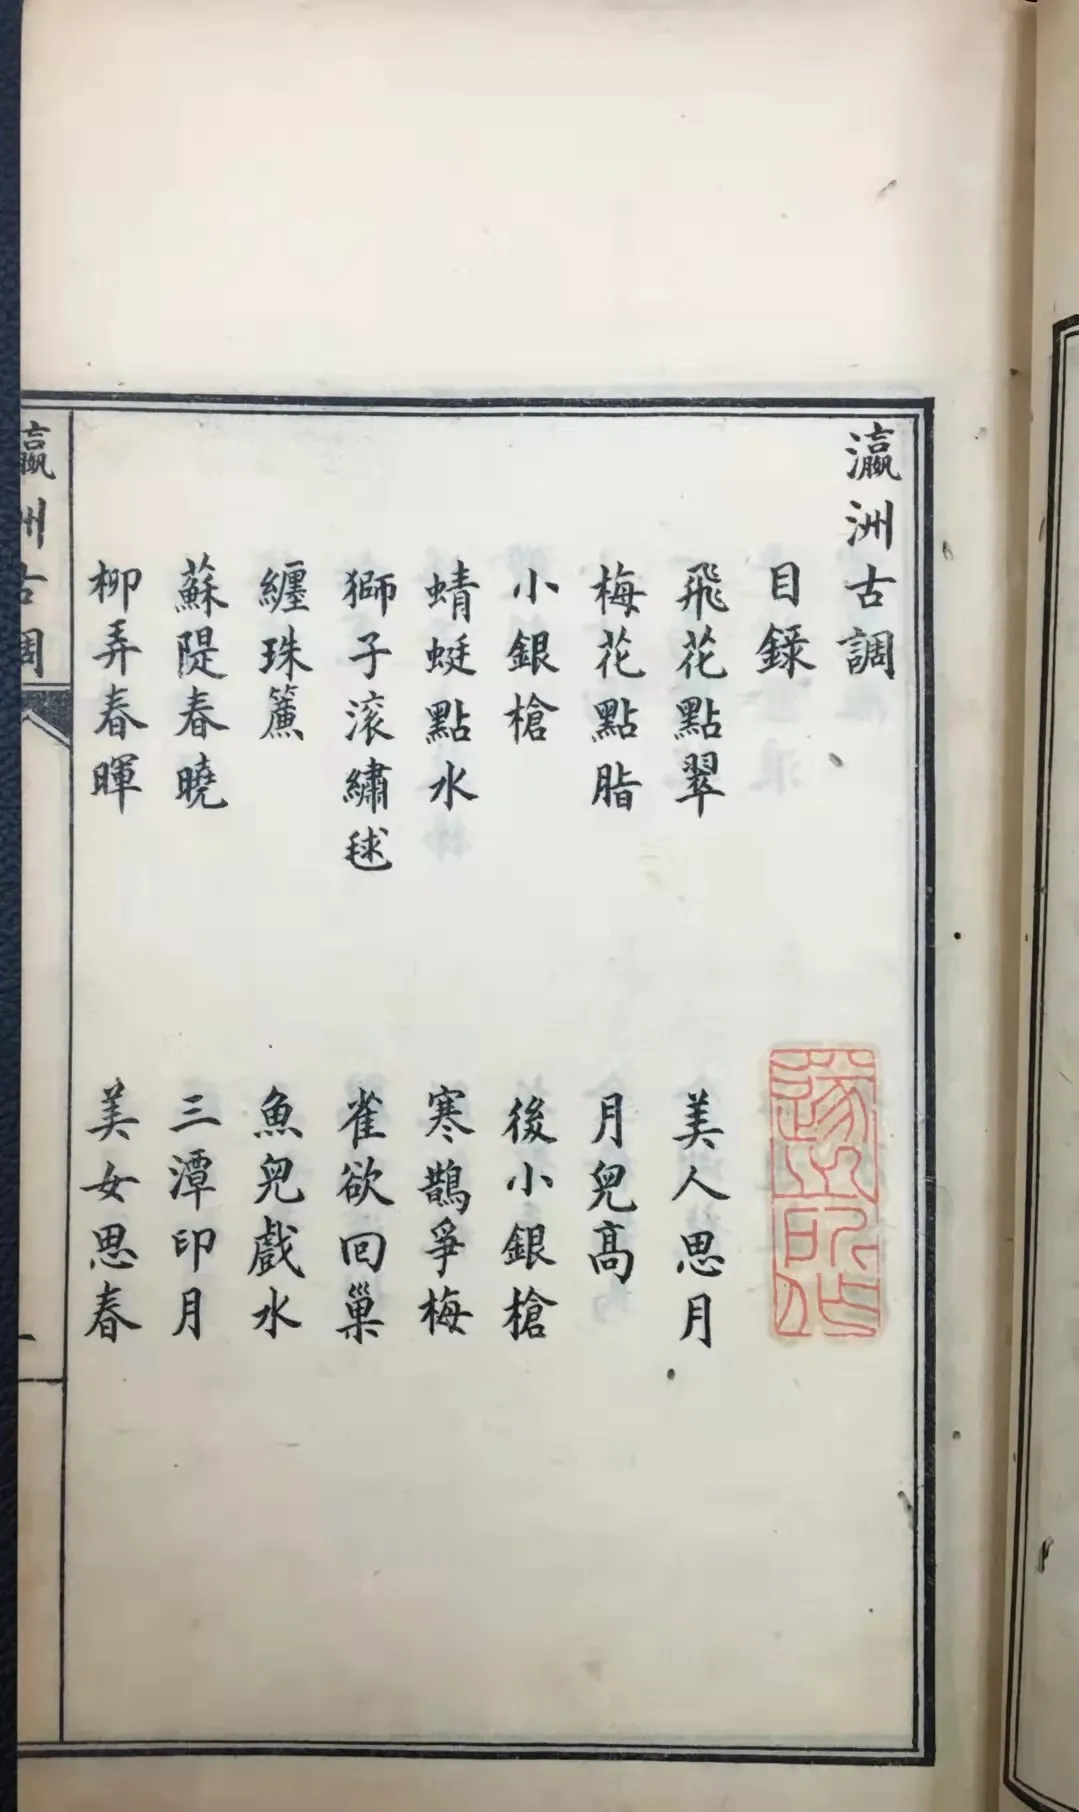 瀛洲古調
目錄
飛花點翠
美人思月
梅花點脂
月兒高
小銀槍
後小銀槍
蜻蜓點水
寒鵲爭梅
獅子滚繡毬
雀欲回巢
纏珠簾
魚兒戲水
蘇隄春曉
三潭印月
柳弄春暉
美女思春
瀛洲古調